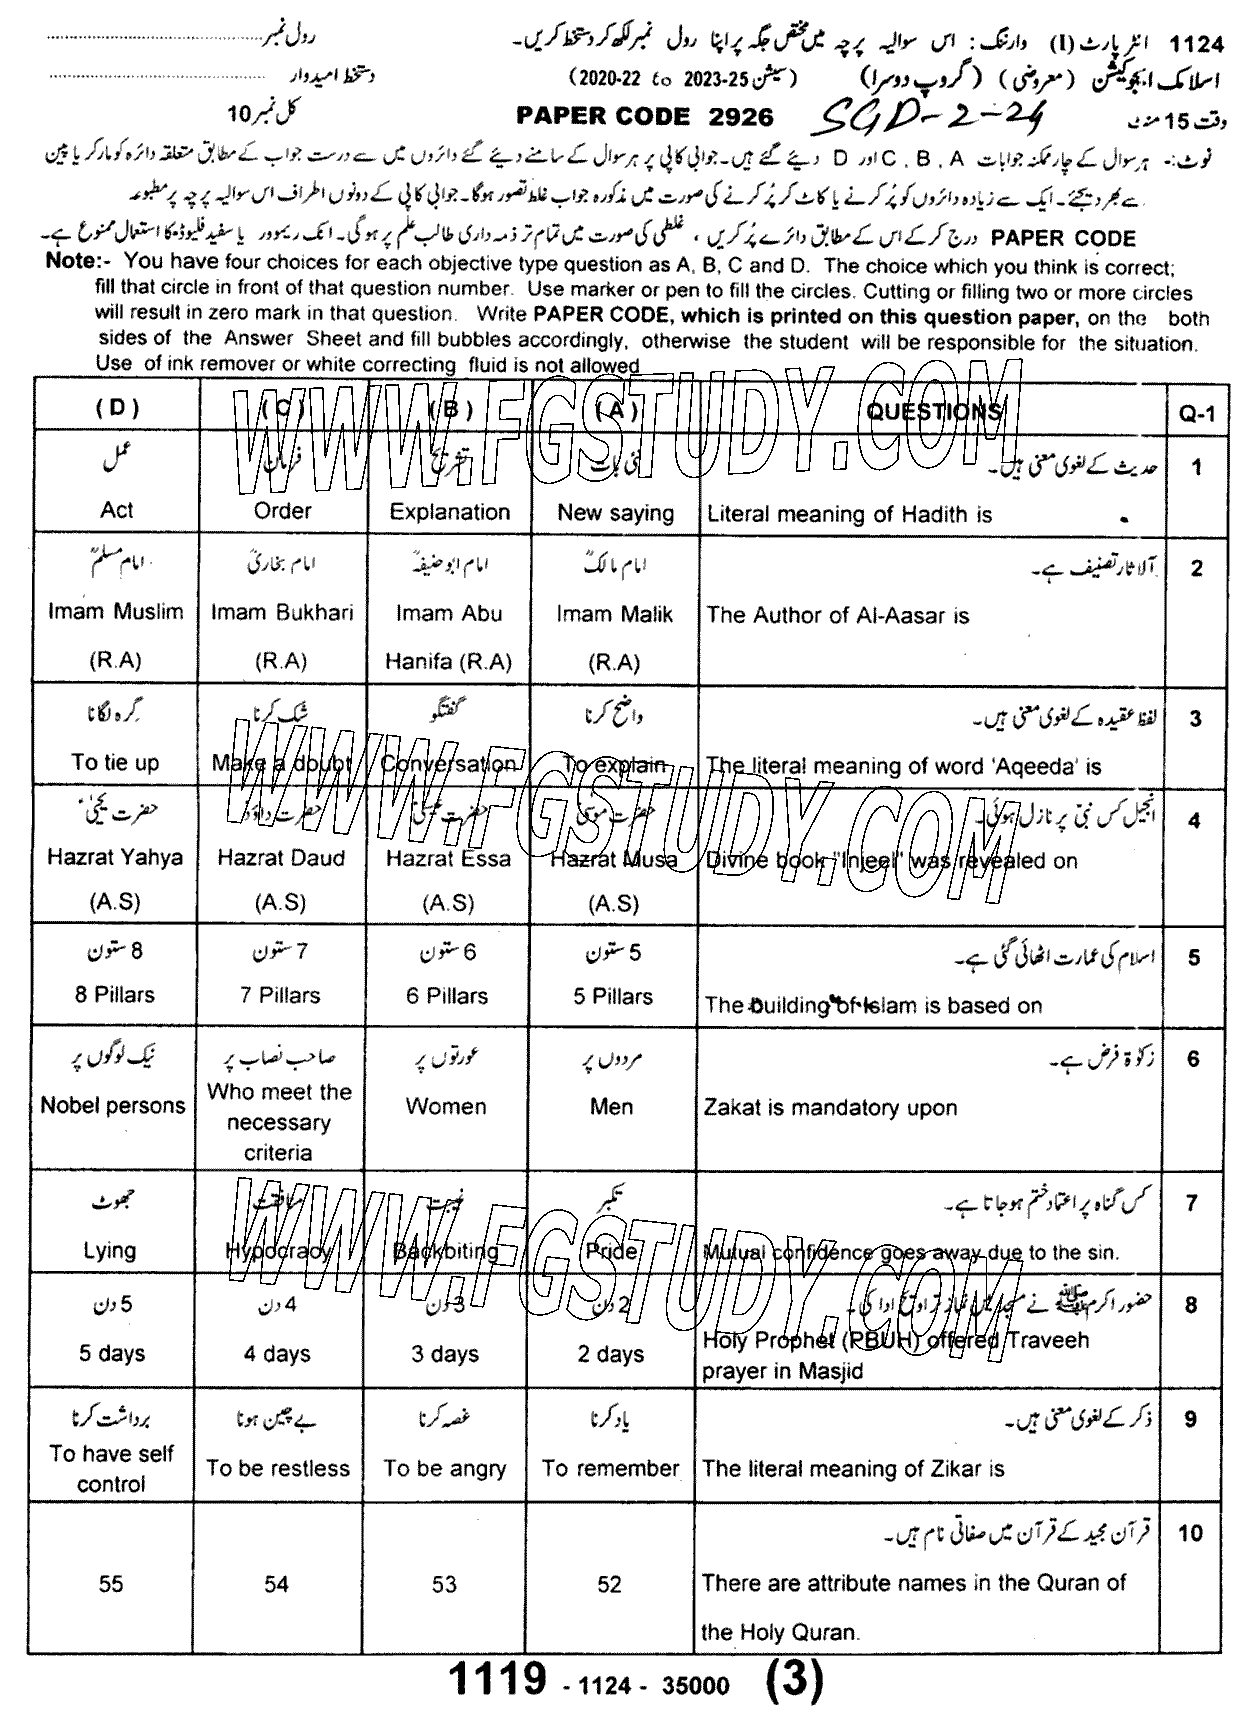 1124 انٹر پارٹ (I) وارننگ: اس سوالیہ پرچہ میں مختص جگہ پر اپنا رول نمبر لکھ کر دستخط کریں۔ رول نمبر
اسلامک ایجوکیشن (معروضی) (گروپ دوسرا) (سیشن 2020-22 to 2023-25) دستخط امیدوار
وقت 15 منٹ SGD-2-24 PAPER CODE 2926 کل نمبر 10
نوٹ:- ہر سوال کے چار ممکنہ جوابات A ، B ، C اور D دیئے گئے ہیں۔ جوابی کاپی پر ہر سوال کے سامنے دیئے گئے دائروں میں سے درست جواب کے مطابق متعلقہ دائرہ کو مارکر یا پین
سے بھر دیجئے۔ ایک سے زیادہ دائروں کو پُر کرنے یا کاٹ کر پُر کرنے کی صورت میں مذکورہ جواب غلط تصور ہوگا۔ جوابی کاپی کے دونوں اطراف اس سوالیہ پرچہ پر مطبوعہ
PAPER CODE درج کر کے اس کے مطابق دائرے پُر کریں ، غلطی کی صورت میں تمام تر ذمہ داری طالب علم پر ہوگی۔ انک ریموور یا سفید فلیوڈ کا استعمال ممنوع ہے۔
Note:- You have four choices for each objective type question as A, B, C and D. The choice which you think is correct;
fill that circle in front of that question number. Use marker or pen to fill the circles. Cutting or filling two or more circles
will result in zero mark in that question. Write PAPER CODE, which is printed on this question paper, on the both
sides of the Answer Sheet and fill bubbles accordingly, otherwise the student will be responsible for the situation.
Use of ink remover or white correcting fluid is not allowed
WWW.FGSTUDY.COM
( D ) ( C ) ( B ) ( A ) QUESTIONS Q-1
عمل فرمان تشریح نئی بات حدیث کے لغوی معنی ہیں۔ 1
Act Order Explanation New saying Literal meaning of Hadith is
امام مسلمؒ امام بخاریؒ امام ابو حنیفہؒ امام مالکؒ آلاثار تصنیف ہے۔ 2
Imam Muslim Imam Bukhari Imam Abu Imam Malik The Author of Al-Aasar is
(R.A) (R.A) Hanifa (R.A) (R.A)
گرہ لگانا شک کرنا گفتگو واضح کرنا لفظ عقیدہ کے لغوی معنی ہیں۔ 3
To tie up Make a doubt Conversation To explain The literal meaning of word 'Aqeeda' is
WWW.FGSTUDY.COM
حضرت یحییٰؑ حضرت داؤدؑ حضرت عیسیٰؑ حضرت موسیٰؑ انجیل کس نبیؑ پر نازل ہوئی۔ 4
Hazrat Yahya Hazrat Daud Hazrat Essa Hazrat Musa Divine book "Injeel" was revealed on
(A.S) (A.S) (A.S) (A.S)
8 ستون 7 ستون 6 ستون 5 ستون اسلام کی عمارت اٹھائی گئی ہے۔ 5
8 Pillars 7 Pillars 6 Pillars 5 Pillars The building of Islam is based on
نیک لوگوں پر صاحب نصاب پر عورتوں پر مردوں پر زکوٰۃ فرض ہے۔ 6
Nobel persons Who meet the necessary criteria Women Men Zakat is mandatory upon
جھوٹ منافقت غیبت تکبر کس گناہ پر اعتماد ختم ہو جاتا ہے۔ 7
Lying Hypocracy Backbiting Pride Mutual confidence goes away due to the sin.
WWW.FGSTUDY.COM
5 دن 4 دن 3 دن 2 دن حضور اکرم ﷺ نے مسجد میں نماز تراویح ادا کی۔ 8
5 days 4 days 3 days 2 days Holy Prophet (PBUH) offered Traveeh
prayer in Masjid
برداشت کرنا بے چین ہونا غصہ کرنا یاد کرنا ذکر کے لغوی معنی ہیں۔ 9
To have self control To be restless To be angry To remember The literal meaning of Zikar is
قرآن مجید کے قرآن میں صفاتی نام ہیں۔ 10
55 54 53 52 There are attribute names in the Quran of
the Holy Quran.
1119 - 1124 - 35000 (3)